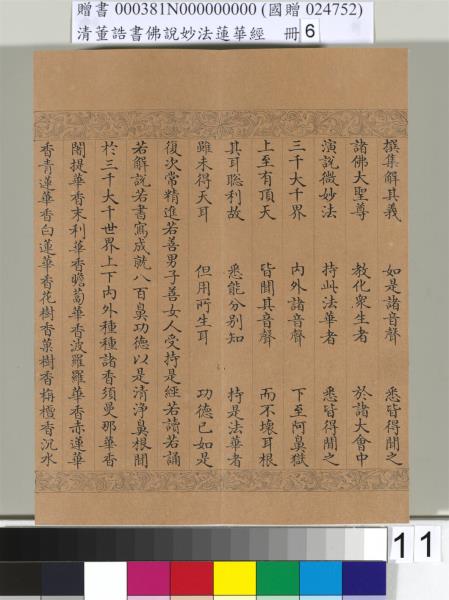 贈書 000381N000000000 (國贈 024752)
清董誥書佛說妙法蓮華經 冊 6
撰集解其義 如是諸音聲 悉皆得聞之
諸佛大聖尊 教化衆生者 於諸大會中
演說微妙法 持此法華者 悉皆得聞之
三千大千界 內外諸音聲 下至阿鼻獄
上至有頂天 皆聞其音聲 而不壞耳根
其耳聡利故 悉能分別知 持是法華者
雖未得天耳 但用所生耳 功德已如是
復次常精進若善男子善女人受持是經若讀若誦
若解說若書寫成就八百鼻功德以是清淨鼻根聞
於三千大千世界上下內外種種諸香須曼那華香
闍提華香末利華香瞻蔔華香波羅羅華香赤蓮華
香青蓮華香白蓮華香花樹香菓樹香栴檀香沉水
11